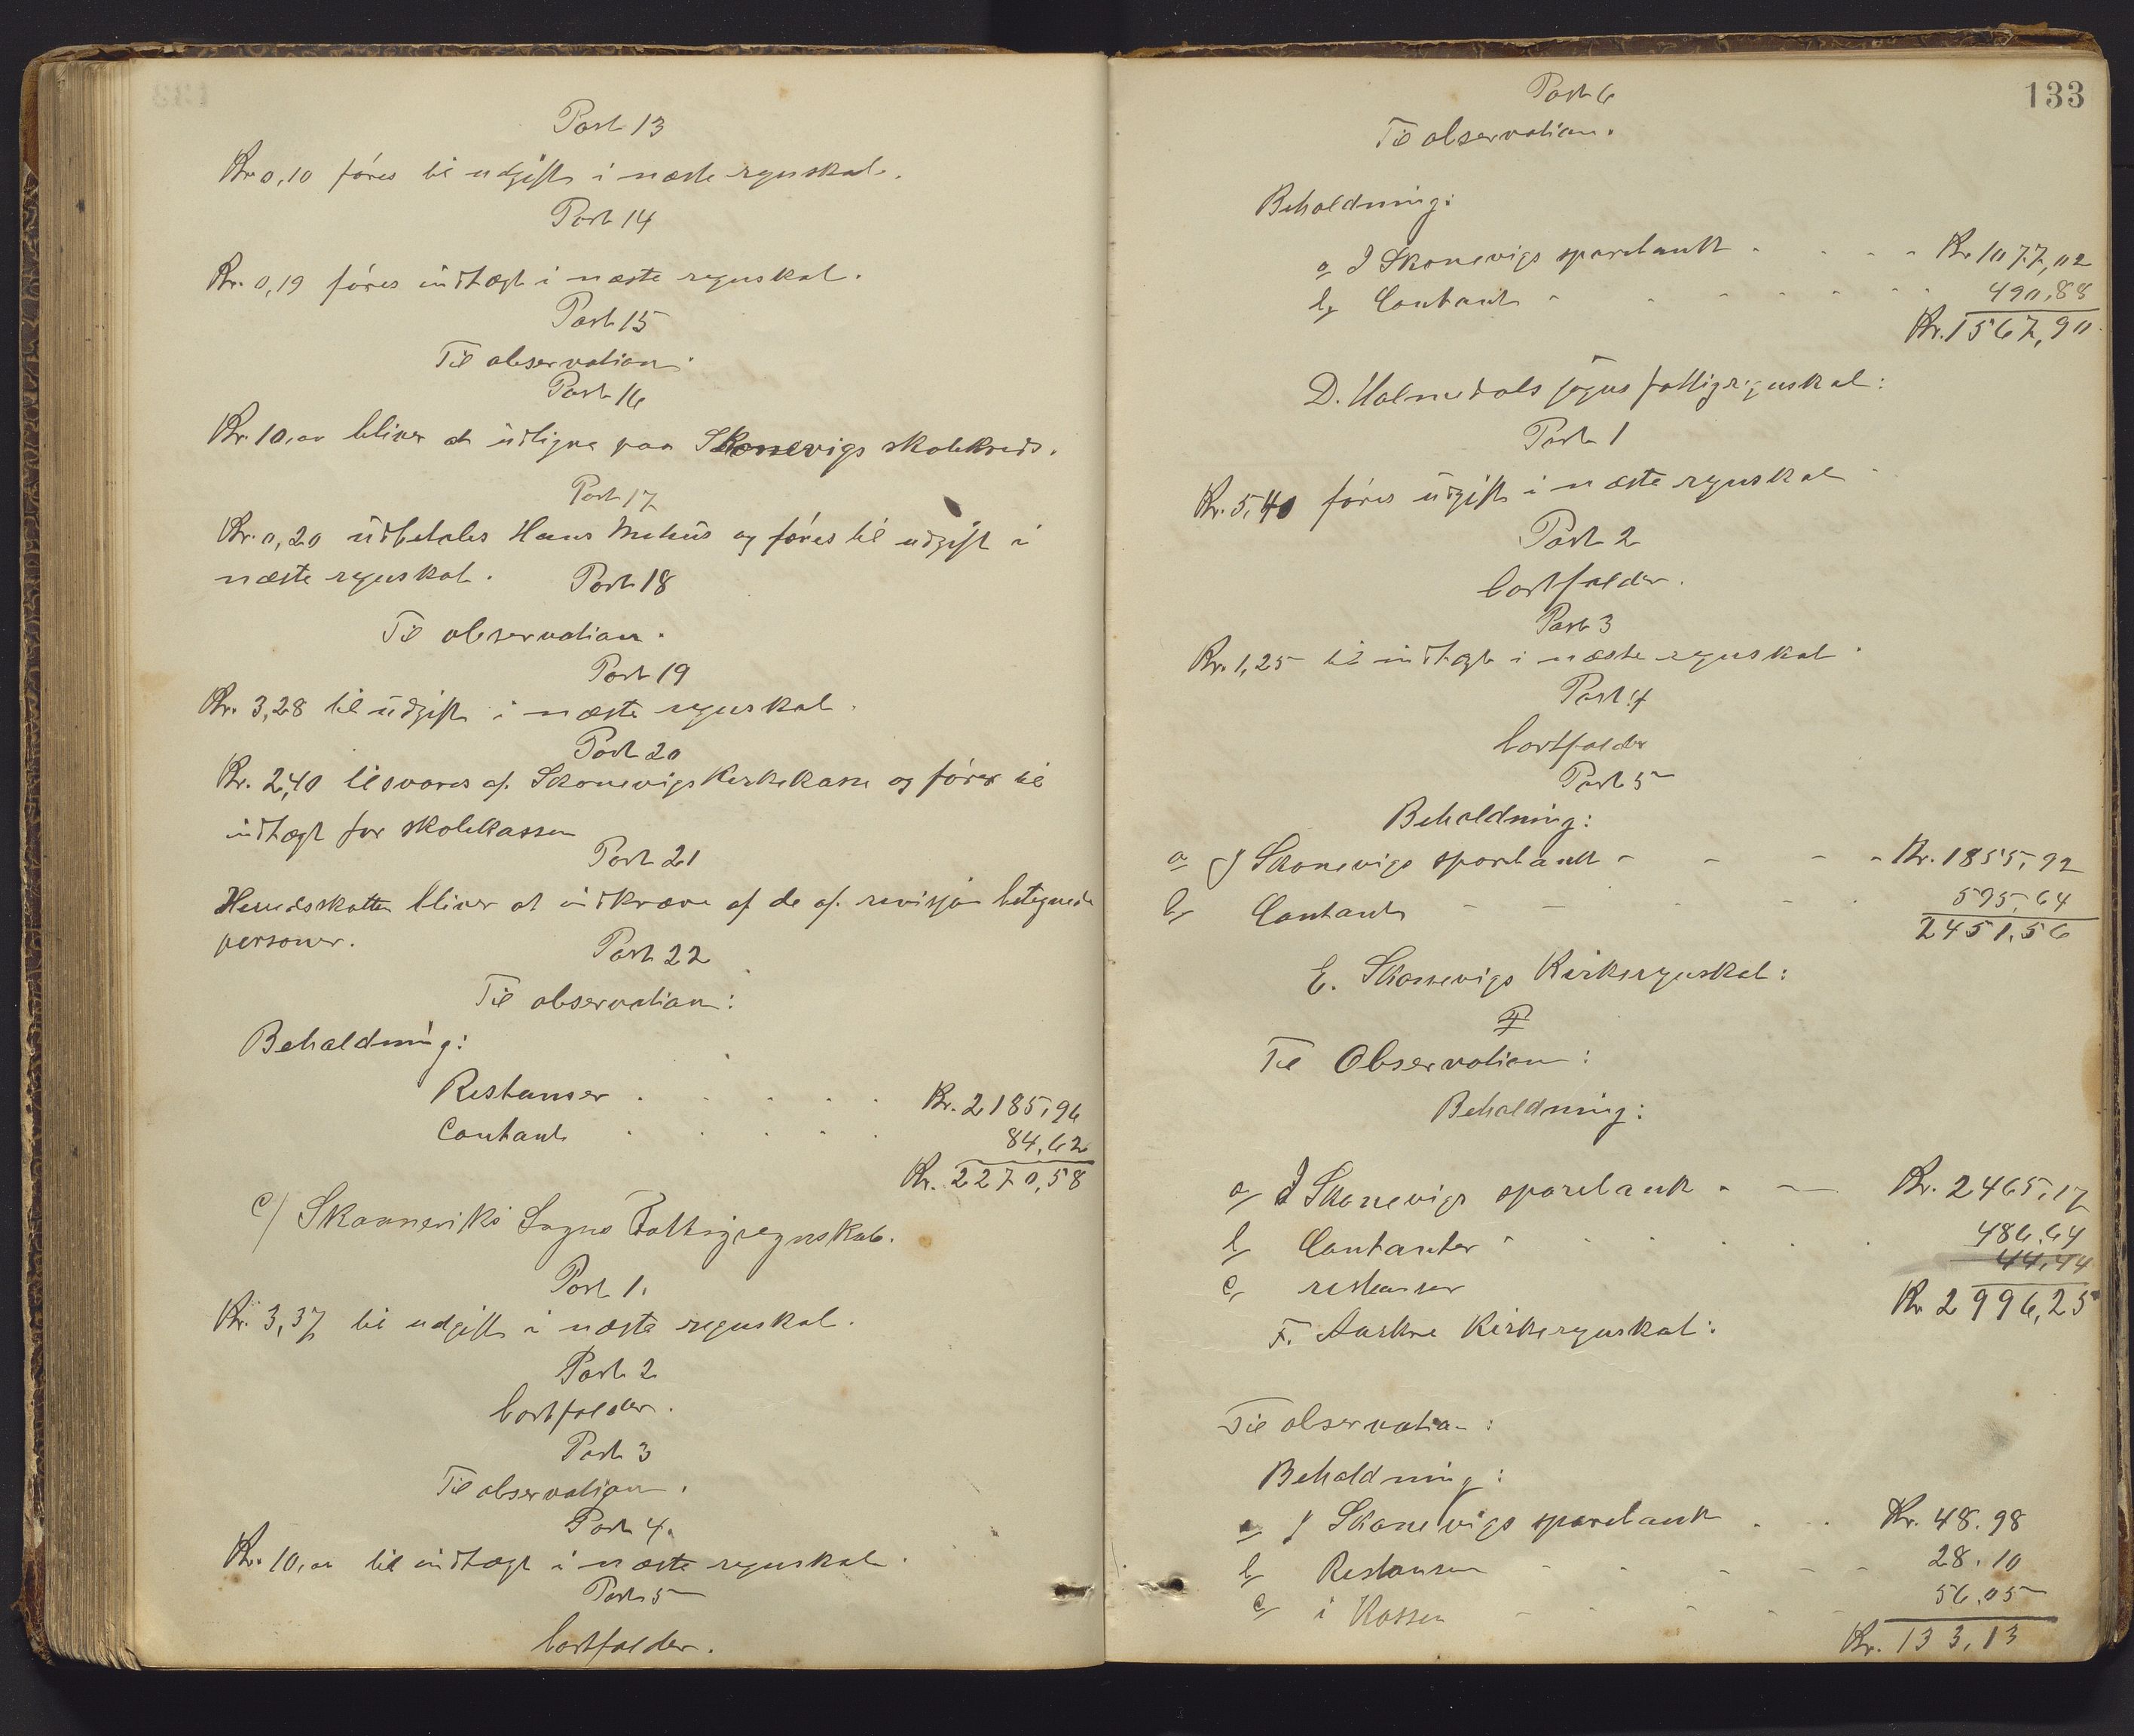 Post 13
Kr. 0,10 föres til udgift i næste regnskab.
Post 14
Kr. 0,19 föres indtægt i næste regnskab.
Post 15
Til observation.
Post 16
Kr. 10,00 bliver at udligne paa Skonevigs skolekreds.
Post 17
Kr. 0,20 udbetales Hans Mehus og föres til udgift i
næste regnskab.
Post 18
Til observation.
Post 19
Kr. 3,28 til udgift i næste regnskab.
Post 20
Kr. 2,40 tilsvares af Skonevigs Kirkekasse og förer til
indtægt for skolekassen
Post 21
Heredsskatten bliver at indkræve af de af revisjon betegnede
personer.
Post 22
Til observation:
Behaldning:
Restanser . . . . . Kr. 2185,96
Contant . . . . . 84,62
Kr. 2270,58
C/ Skaaneviks Sogns Fattigregnskab.
Post 1.
Kr. 3,37 til udgift i næste regnskab.
Post 2
bortfalder.
Post 3
Til observation.
Post 4.
Kr. 10,00 til indtægt i næste regnskab.
Post 5
bortfalder.
133
Post 6
Til observation.
Beholdning:
a, I Skonevigs sparebank - - - - Kr. 1077,02
b, Contant - - - - - - 490,88
Kr. 1567,90
D. Holmedals sogns fattigregnskab:
Post 1
Kr. 5,40 föres udgift i næste regnskab
Post 2
bortfalder.
Post 3
Kr. 1,25 til indtægt i næste regnskab.
Post 4
bortfalder
Post 5
Beholdning:
a, I Skonevigs sparebank - - - - Kr. 1855,92
b, Contant - - - - - 595,64
2451,56
E. Skonevigs Kirkeregnskab:
Til Observation:
Beholdning:
a, I Skonevigs sparebank - - Kr. 2465,17
b, Contanter - - - - 486,64
c, restanser 44,44
Kr 2996,25
F. Aakre Kirkeregnskab:
Til observation:
Behaldning:
a, I Skonevigs sparebank . . Kr. 48.98
b, Restanser - - - - - 28.10
c, i Kassen - - - - - 56.05
Kr. 133,13